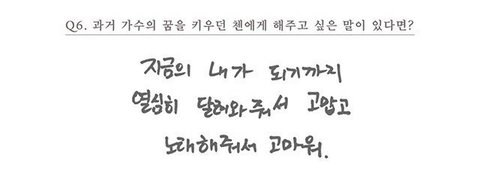 Q6. 과거 가수의 꿈을 키우던 첸에게 해주고 싶은 말이 있다면?
지금의 내가 되기까지
열심히 달려와줘서 고맙고
노래해줘서 고마워.